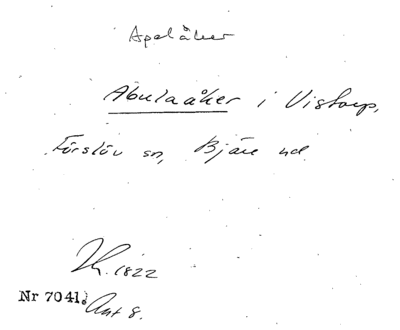 Apelåker
Abulaåker i Vistorp,
Förslöv sn, Bjäre hd
Th. 1822
Nr 7041. Ant 8.